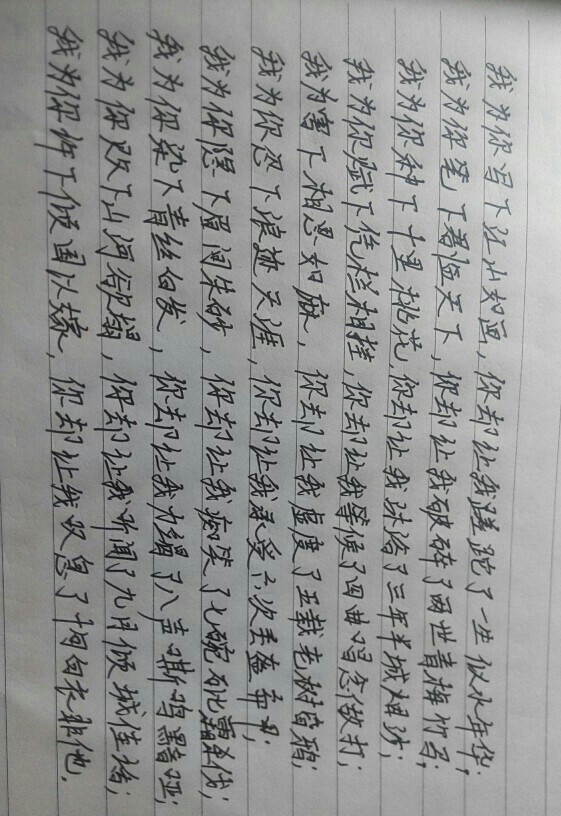 我为你写下江山如画，你却让我蹉跎了一生似水年华；
我为你笔下君临天下，你却让我破碎了两世青梅竹马；
我为你种下十里桃花，你却让我沐浴了三年半城烟沙；
我为你赋下凭栏相挂，你却让我等候了四曲唱念做打；
我为写下相思如麻，你却让我虚度了五载老树昏鸦；
我为你忍下浪迹天涯，你却让我承受六次丢盔弃甲；
我为你隐下眉间朱砂，你却让我痴笑了七碗砒霜杀伐；
我为你染下青丝白发，你却让我力竭了八声嘶鸣暗哑；
我为你败下山河欲塌，你却让我听闻了九月倾城佳话；
我为你许下倾国以嫁，你却让我叹息了十句白衣非他。